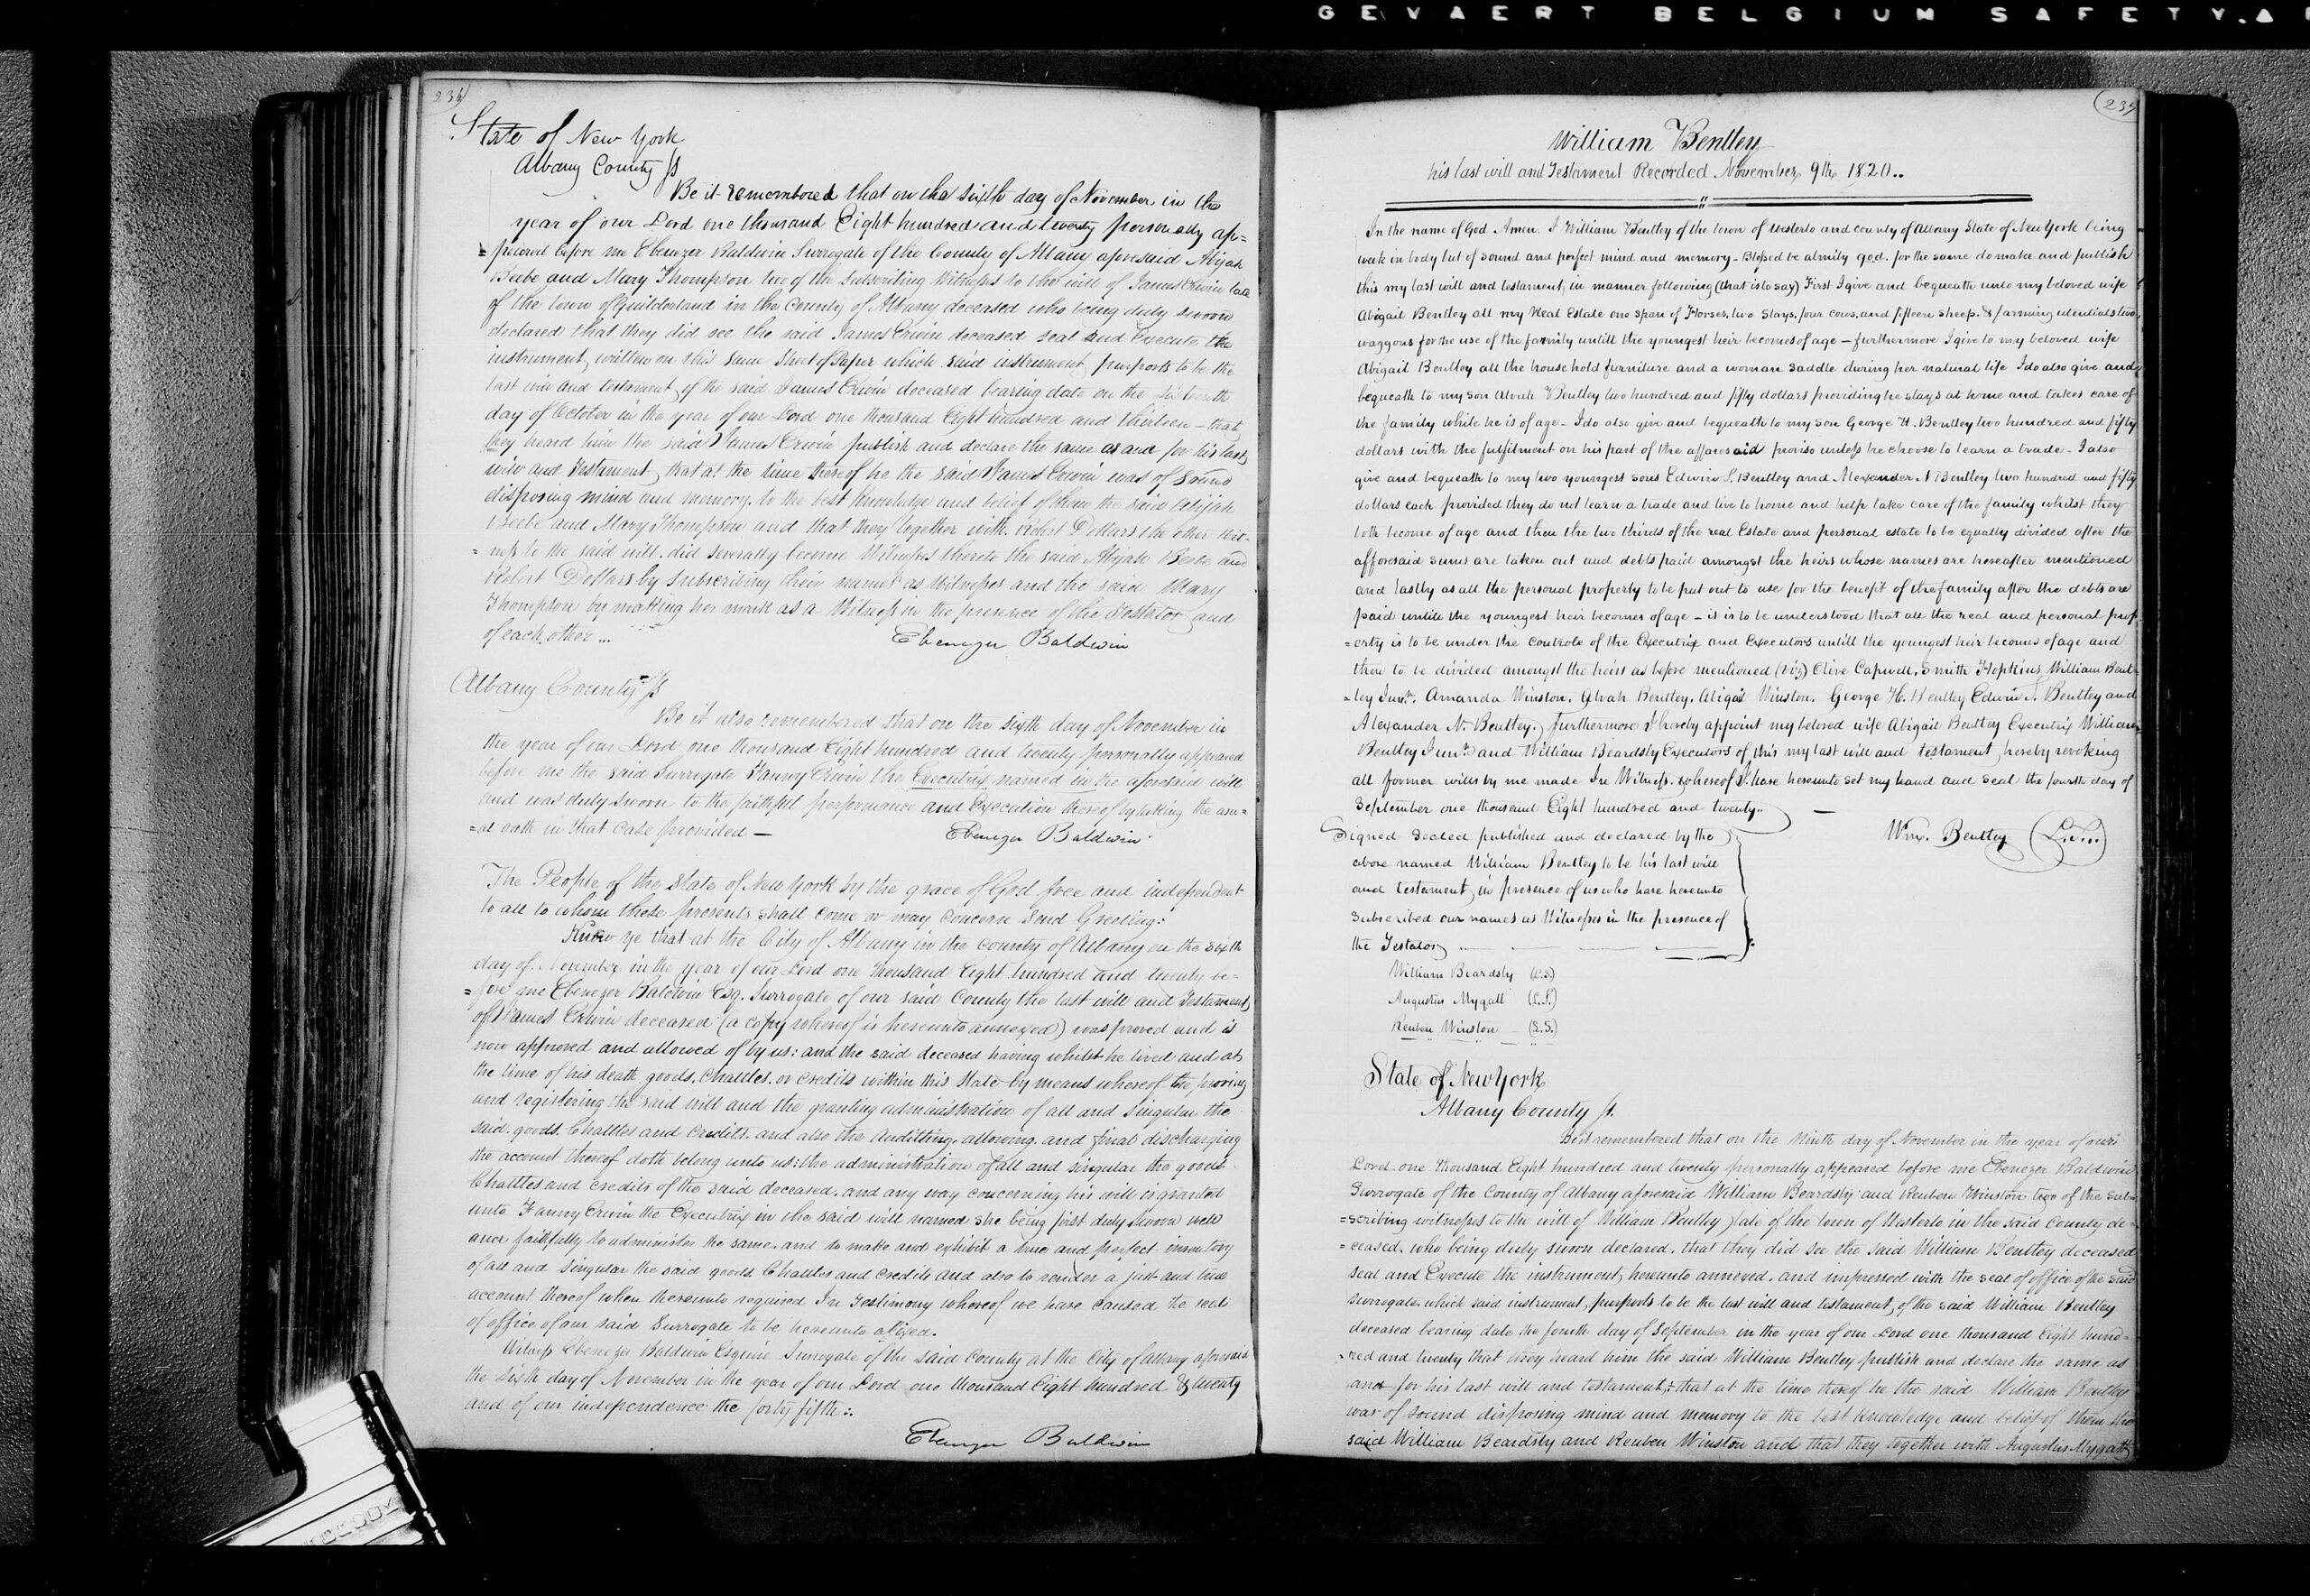 GEVAERT BELGIUM SAFETY
State of New York
Albany County ss
Be it remembered that on the sixth day of November in the
year of our Lord one thousand Eight hundred and twenty personally ap=
=peared before me Ebenezer Baldwin Surrogate of the County of Albany aforesaid Abijah
Beebe and Mary Thompson two of the subscribing Witnesses to the will of James Erwin late
of the town of Guilderland in the County of Albany deceased who being duly sworn
declared that they did see the said James Erwin deceased seal and Execute the
instrument, written on this same Sheet of Paper which said instrument, purports to be the
last will and testament, of the said James Erwin deceased bearing date on the
day of October in the year of our Lord one thousand Eight hundred and thirteen - that
they heard him the said James Erwin publish and declare the same as and for his last
will and Testament, that at the time thereof he the said James Erwin was of sound
disposing mind and memory, to the best knowledge and belief of them the said Abijah
Beebe and Mary Thompson and that they together with Robert Dollars the other Wit-
=ness to the said will, did severally become Witnesses thereto the said Abijah Beebe and
Robert Dollars by Subscribing their names as Witnesses and the said Mary
Thompson by making her mark as a Witness in the presence of the Testator and
of each other...
Ebenezer Baldwin
Albany County ss
Be it also remembered that on the sixth day of November in
the year of our Lord one thousand Eight hundred and twenty personally appeared
before me the said Surrogate Fanny Erwin the Executrix named in the aforesaid will
and was duly sworn to the faithful performance and Execution thereof by taking the usu=
=al oath in that case provided —
Ebenezer Baldwin
The People of the State of New York by the grace of God free and independent
to all to whom these presents shall come or may concern Send Greeting:
Know ye that at the City of Albany in the county of Albany on the sixth
day of November in the year of our Lord one thousand Eight hundred and twenty be=
=fore me Ebenezer Baldwin Esq. Surrogate of our said County the last will and Testament
of James Erwin deceased (a copy whereof is hereunto annexed) was proved and is
now approved and allowed of by us: and the said deceased having whilst he lived and at
the time of his death goods, Chattles, or credits within this State by means whereof the proving
and registering the said will and the granting administration of all and singular the
said goods, Chattles and Credits, and also the Auditting, allowing, and final discharging
the account thereof doth belong unto us: the administration of all and singular the goods
Chattles and credits of the said deceased, and any way concerning his will is granted
unto Fanny Erwin the Executrix in the said will named she being first duly sworn well
and faithfully to administer the same, and to make and exhibit a true and perfect inventory
of all and singular the said goods, Chattles and credits and also to render a just and true
account thereof when thereunto required In Testimony whereof we have caused the seal
of office of our said Surrogate to be hereunto afixed.
Witness Ebenezer Baldwin Esquire Surrogate of the said County at the City of Albany aforesaid
the sixth day of November in the year of our Lord one thousand Eight hundred & twenty
and of our independence the forty fifth:.
Ebenezer Baldwin
William Bentley
his last will and Testament Recorded November 9th 1820..
In the name of God Amen. I William Bentley of the town of Westerlo and county of Albany State of New York being
weak in body but of sound and perfect mind and memory - Blessed be almity god. for the same do make and publish
this my last will and testament, in manner following (that is to say) First I give and bequeath unto my beloved wife
Abigail Bentley all my Real Estate one span of Horses, two Slays, four cows, and fifteen sheep. & farming utentials two
waggons for the use of the family untill the youngest heir becomes of age — furthermore I give to my beloved wife
Abigail Bentley all the household furniture and a woman saddle during her natural life I do also give and
bequeath to my son Alvah Bentley two hundred and fifty dollars providing he stays at home and takes care of
the family while he is of age - I do also give and bequeath to my son George H. Bentley two hundred and fifty
dollars with the fulfilment on his part of the afforesaid proviso unless he choose to learn a trade - I also
give and bequeath to my two youngest sons Edwin S. Bentley and Alexander N Bentley two hundred and fifty
dollars each provided they do not learn a trade and live to home and help take care of the family whilst they
both become of age and then the two thirds of the real Estate and personal estate to be equally divided after the
afforesaid sums are taken out and debts paid amongst the heirs whose names are hereafter mentioned
and lastly as all the personal property to be put out to use for the benefit of the family after the debts are
paid untill the youngest heir becomes of age - it is to be understood that all the real and personal prop
=erty is to be under the controle of the Executrix and Executors untill the youngest heir becomes of age and
then to be divided amongst the heirs as before mentioned (viz) Olive Capwell, Smith Hopkins, William Bent-
=ley Junr. Amanda Winston. Alvah Bentley. Abigail Winston. George H. Bentley Edwin S. Bentley and
Alexander N. Bentley. furthermore I hereby appoint my beloved wife Abigail Bentley Executrix William
Bentley Junr. and William Beardsly Executors of this my last will and testament, hereby revoking
all former wills by me made In Witness. whereof I have hereunto set my hand and seal the fourth day of
September one thousand Eight hundred and twenty..
Signed sealed published and declared by the
above named William Bentley to be his last will
and testament, in presence of us who have hereunto
subscribed our names as Witnesses in the presence of
the Testator
Wm. Bentley (L.S.)
William Beardsly (L.S.)
Augustus Mygatt (L.S.)
Reuben Winston (L.S.)
State of New York
Albany County ss.
Be it remembered that on the Ninth day of November in the year of our
Lord one thousand Eight hundred and twenty personally appeared before me Ebenezer Baldwin
Surrogate of the County of Albany aforesaid William Beardsly and Reuben Winston two of the sub=
=scribing witnesses to the will of William Bentley late of the town of Westerlo in the said County de=
=ceased, who being duly sworn declared, that they did see the said William Bentley deceased
seal and Execute the instrument, hereunto annexed, and impressed with the seal of office of the said
surrogate, which said instrument, purports to be the last will and testament, of the said William Bentley
deceased bearing date the fourth day of September in the year of our Lord one thousand Eight hund=
=red and twenty that they heard him the said William Bentley publish and declare the same as
and for his last will and testament, that at the time thereof he the said William Bentley
was of sound disposing mind and memory to the best knowledge and belief of them the
said William Beardsly and Reuben Winston and that they together with Augustus Mygatt